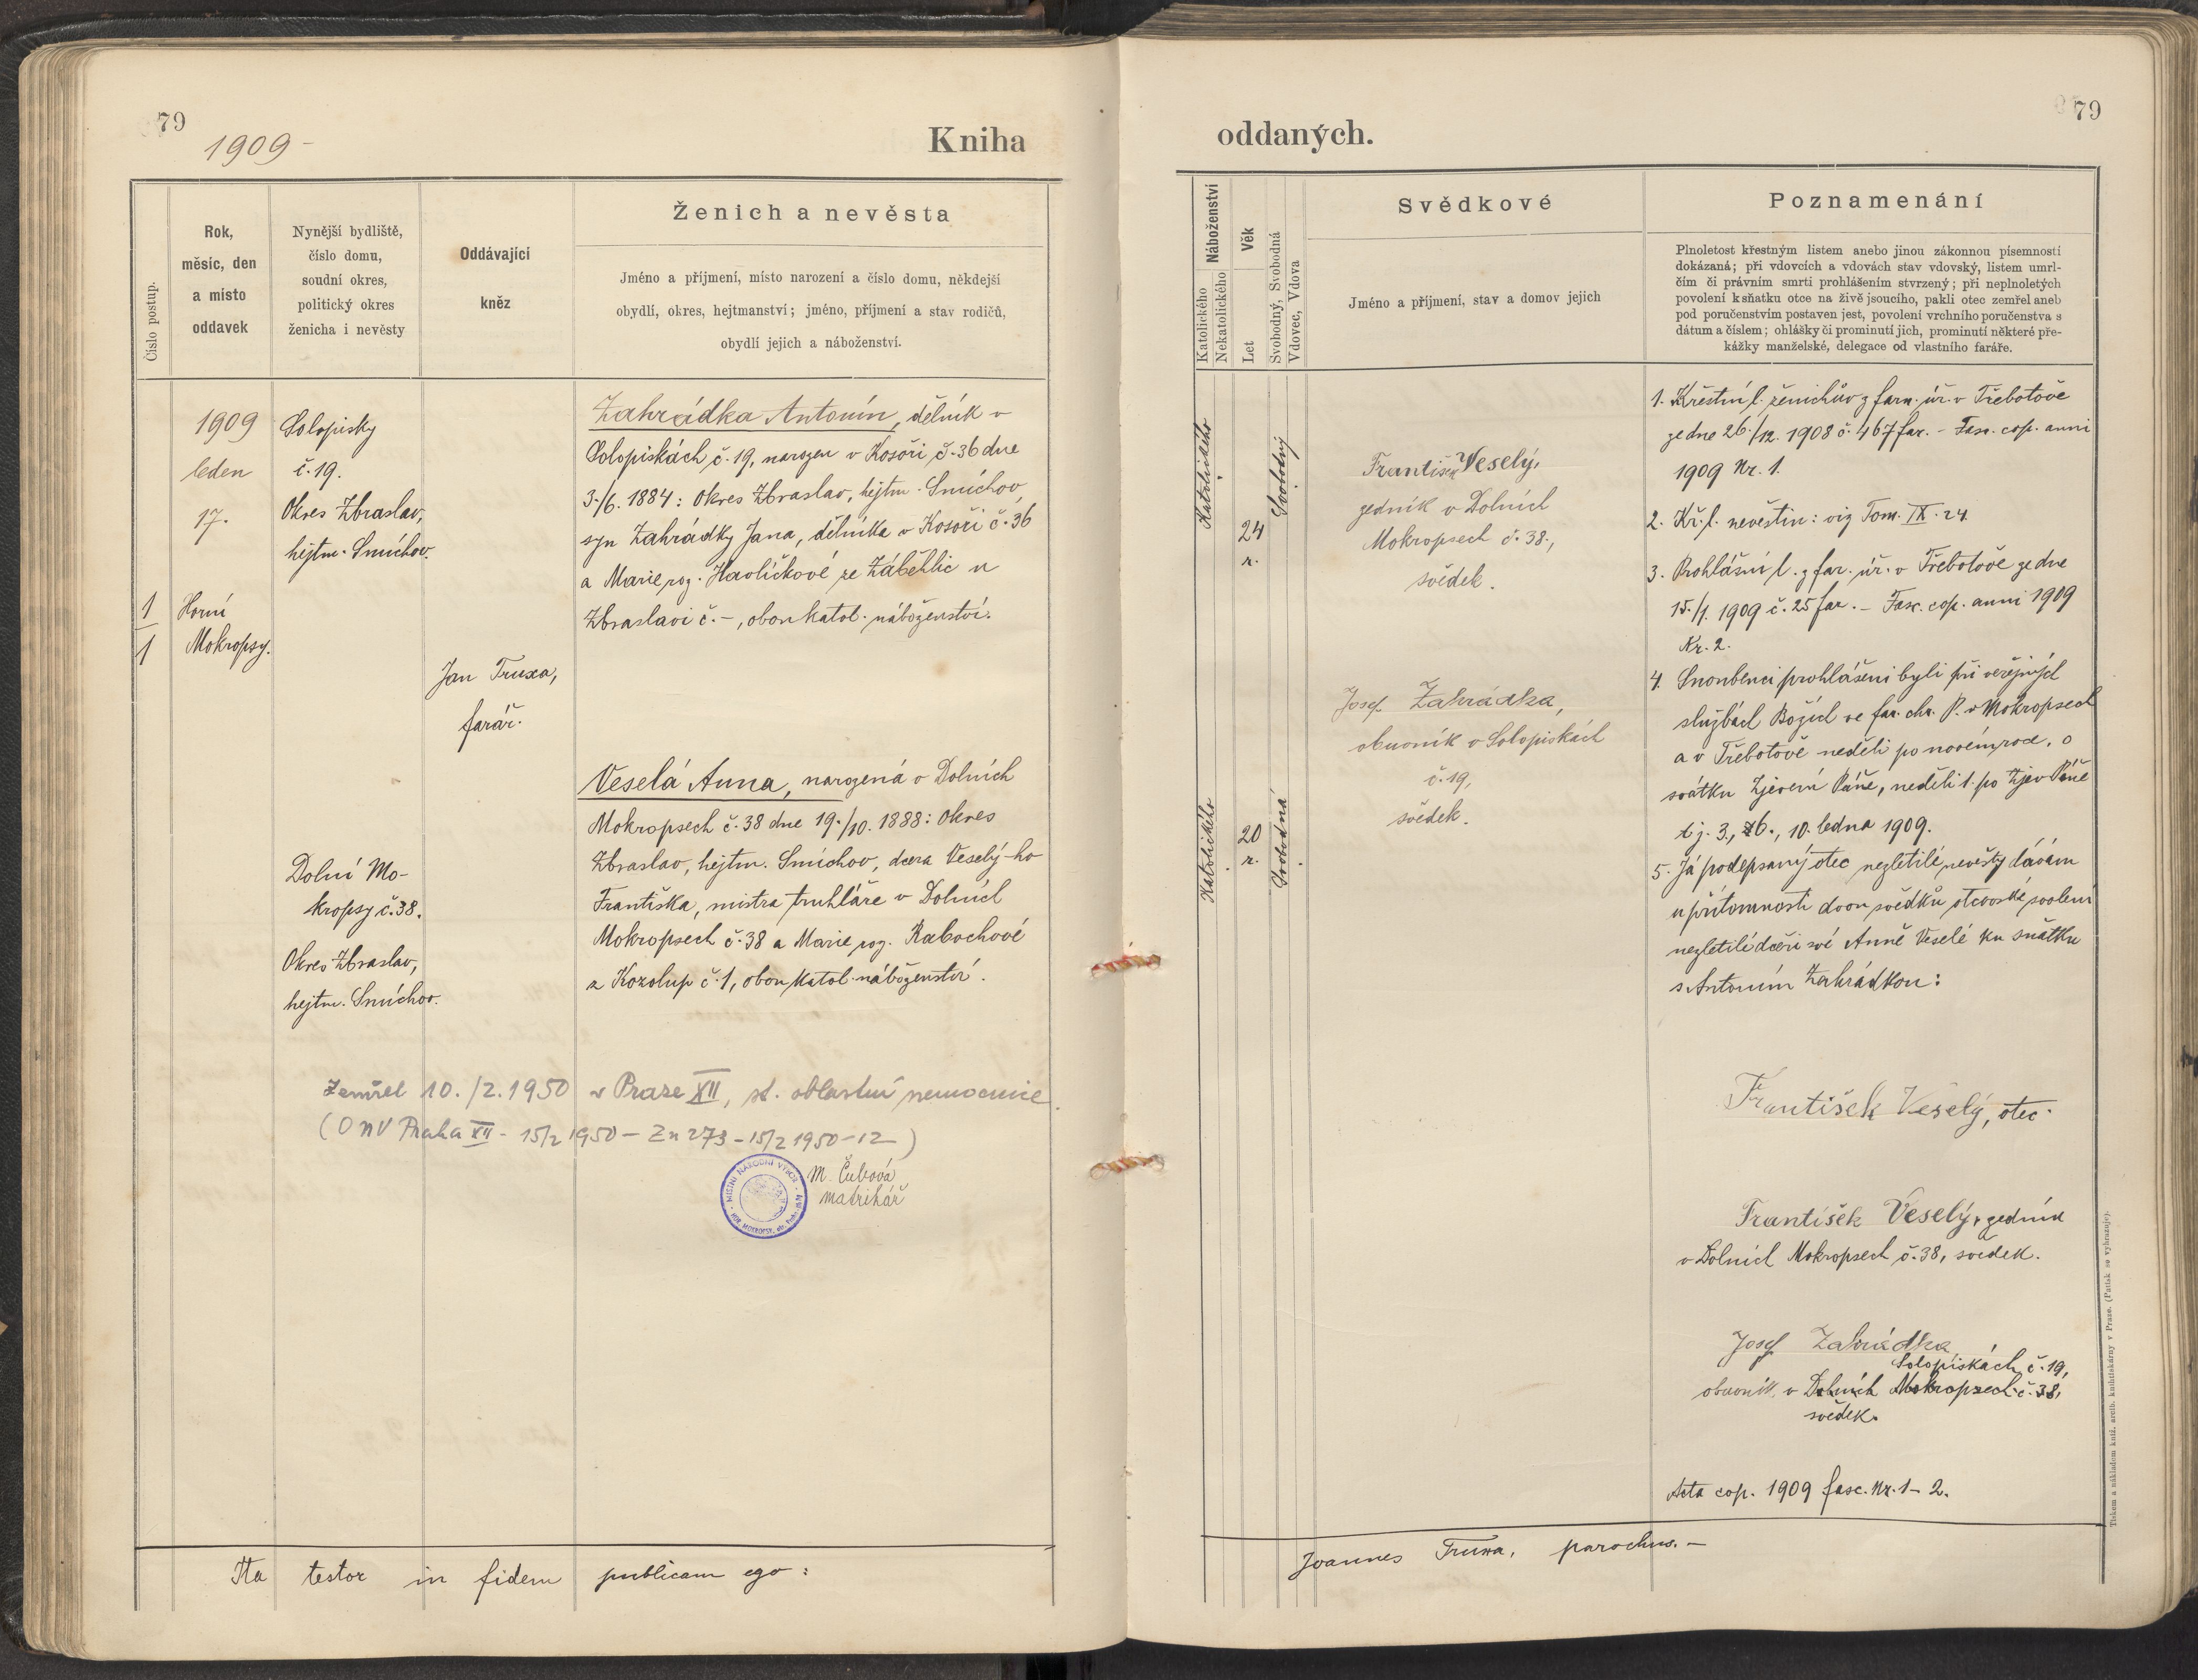 79
1909 -
Kniha
Číslo postup.
Rok,
měsíc, den
a místo
oddavek
Nynější bydliště,
číslo domu,
soudní okres,
politický okres
ženicha i nevěsty
Oddávající
kněz
Ženich a nevěsta
Jméno a příjmení, místo narození a číslo domu, někdejší
obydlí, okres, hejtmanství; jméno, příjmení a stav rodičů,
obydlí jejich a náboženství.
1
1
1909
leden
17.
Horní
Mokropsy.
Solopisky
č. 19.
Okres Zbraslav,
hejtm. Smíchov.
Jan Truxa,
farář.
Zahrádka Antonín, dělník v
Solopiskách č. 19, narozen v Kosoři č. 36 dne
3./6. 1884: okres Zbraslav, hejtm. Smíchov,
syn Zahrádky Jana, dělníka v Kosoři č. 36
a Marie roz. Havlíčkové ze Záběhlic u
Zbraslavi č. –, obou katol. náboženství.
Dolní Mo-
kropsy č. 38.
Okres Zbraslav,
hejtm. Smíchov.
Veselá Anna, narozená v Dolních
Mokropsech č. 38 dne 19./10. 1888: okres
Zbraslav, hejtm. Smíchov, dcera Veselý-ho
Františka, mistra truhláře v Dolních
Mokropsech č. 38 a Marie roz. Rabochové
z Kozolup č. 1, obou katol. náboženství.
Zemřel 10./2. 1950 v Praze XII, st. oblastní nemocnice
(ONV Praha XII - 15/2 1950 - Zn 273 - 15/2 1950 - 12)
MÍSTNÍ NÁRODNÍ VÝBOR
HOR. MOKROPSY
M. Čubová
matrikář
Ita testor in fidem publicam ego:
79
oddaných.
Náboženství
Katolického
Nekatolického
Věk
Let
Svobodný, Svobodná
Vdovec, Vdova
Svědkové
Jméno a příjmení, stav a domov jejich
Poznamenání
Plnoletost křestným listem anebo jinou zákonnou písemností
dokázaná; při vdovcích a vdovách stav vdovský, listem umrl-
čím či právním smrti prohlášením stvrzený; při neplnoletých
povolení k sňatku otce na živě jsoucího, pakli otec zemřel aneb
pod poručenstvím postaven jest, povolení vrchního poručenstva s
dátum a číslem; ohlášky či prominutí jich, prominutí některé pře-
kážky manželské, delegace od vlastního faráře.
Katolického
24
r.
Svobodný
František Veselý,
zedník v Dolních
Mokropsech č. 38.,
svědek.
Josef Zahrádka,
obuvník v Solopiskách
č. 19,
svědek.
Katolického
20
r.
Svobodná
1. Křestní l. ženichův z farn. úř. v Třebotově
ze dne 26./12. 1908 č. 467 far. – Fasc. cop. anni
1909 Nr. 1.
2. Kř. l. nevěstin: viz Tom. IX. 24.
3. Prohlášní l. z far. úř. v Třebotově ze dne
15./1. 1909 č. 25 far. – Fasc. cop. anni 1909
Nr. 2.
4. Snoubenci prohlášeni byli při veřejných
službách Božích ve far. chr. P. v Mokropsech
a v Třebotově neděli po novém roce, o
svátku Zjevení Páně, neděli 1. po Zjev. Páně
t. j. 3., 6., 10. ledna 1909.
5. Já podepsaný otec nezletilé nevěsty dávám
u přítomnosti dvou svědků otcovské svolení
nezletilé dceři své Anně Veselé ku sňatku
s Antonínem Zahrádkou:
František Veselý, otec.
František Veselý, zedník
v Dolních Mokropsech č. 38, svědek.
Josef Zahrádka
Solopiskách č. 19,
obuvník v Dolních Mokropsech č. 38,
svědek.
Acta cop. 1909 fasc. Nr. 1 - 2.
Joannes Truxa, parochus. –
Tiskem a nákladem kníž. arcib. knihtiskárny v Praze. (Patisk se vyhrazuje).